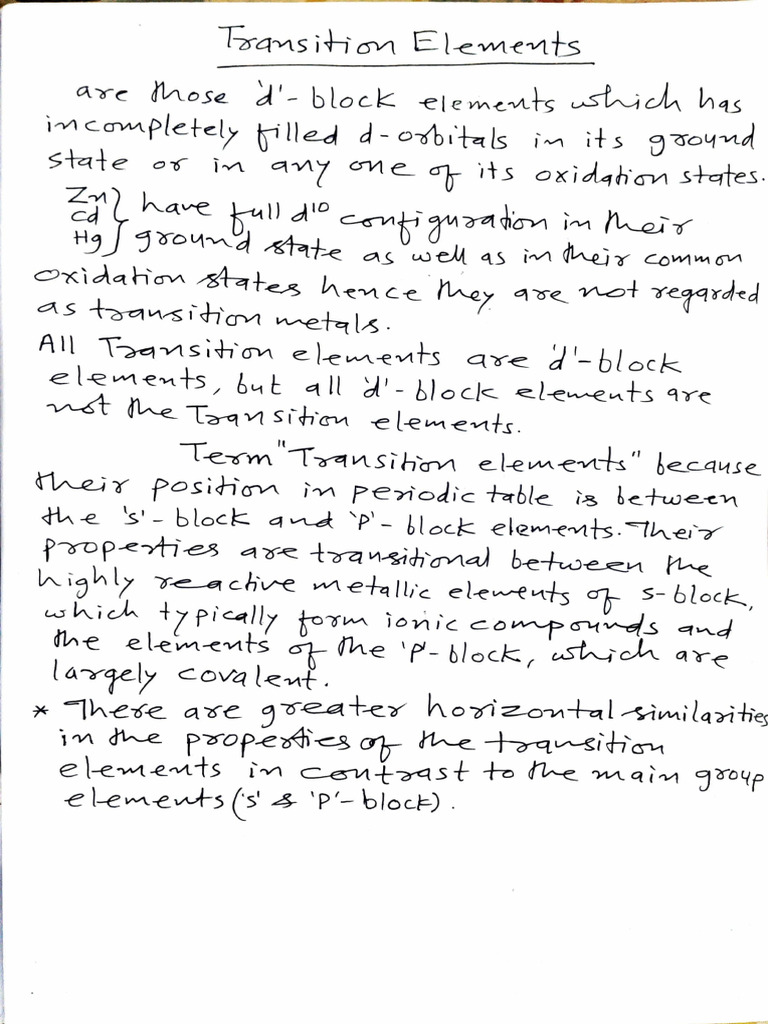 Transition Elements
are those 'd'-block elements which has
incompletely filled d-orbitals in its ground
state or in any one of its oxidation states.
Zn
Cd } have full d¹⁰ configuration in their
Hg } ground state as well as in their common
oxidation states hence they are not regarded
as transition metals.
All Transition elements are 'd'-block
elements, but all 'd'-block elements are
not the Transition elements.
Term "Transition elements" because
their position in periodic table is between
the 's'-block and 'P'-block elements. Their
properties are transitional between the
highly reactive metallic elements of s-block,
which typically form ionic compounds and
the elements of the 'P'-block, which are
largely covalent.
* There are greater horizontal similarities
in the properties of the transition
elements in contrast to the main group
elements ('s' & 'P'-block).